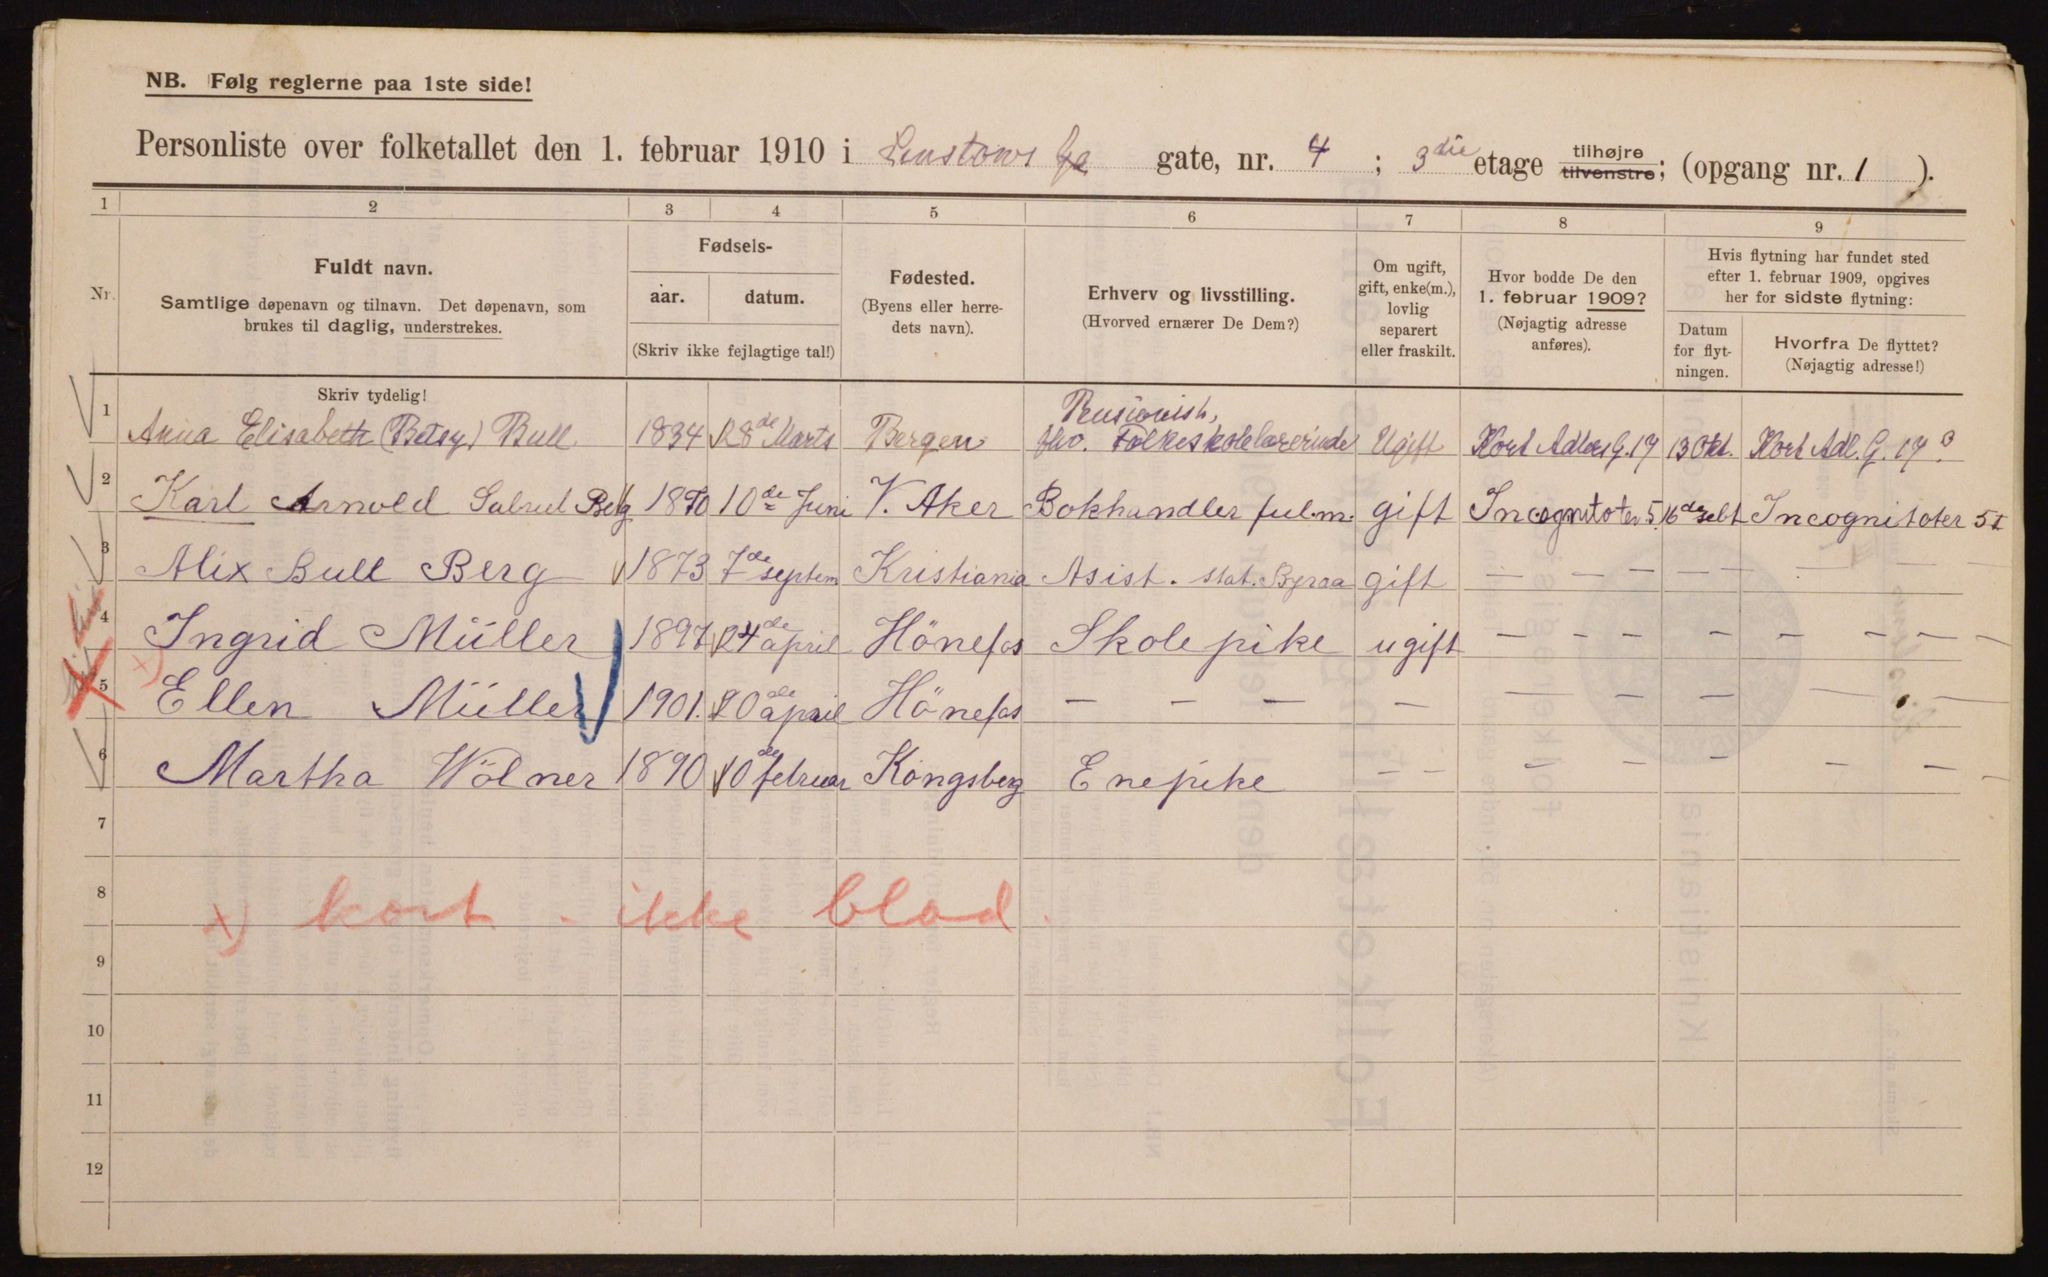 NB. Følg reglerne paa 1ste side!
Personliste over folketallet den 1. februar 1910 i Linstows ga gate, nr. 4 ; 3die etage tilhøjre tilvenstre; (opgang nr. 1 ).
1 2 3 4 5 6 7 8 9
Nr.
Fuldt navn.
Samtlige døpenavn og tilnavn. Det døpenavn, som
brukes til daglig, understrekes.
Skriv tydelig!
Fødsels-
aar. datum.
(Skriv ikke fejlagtige tal!)
Fødested.
(Byens eller herre-
dets navn).
Erhverv og livsstilling.
(Hvorved ernærer De Dem?)
Om ugift,
gift, enke(m.),
lovlig
separert
eller fraskilt.
Hvor bodde De den
1. februar 1909?
(Nøjagtig adresse
anføres).
Hvis flytning har fundet sted
efter 1. februar 1909, opgives
her for sidste flytning:
Datum
for flyt-
ningen.
Hvorfra De flyttet?
(Nøjagtig adresse!)
Pensionist,
1 Anna Elisabeth (Betsy) Bull 1834 28de Marts Bergen fhv. Folkeskolelærerinde Ugift Kort Adlers G. 19 13 Okt. Kort Adl. G. 19
2 Karl Arnold Gabriel Berg 1870 10de Juni V. Aker Bokhandler fulm. gift Incognitoter 5. 16de sebt Incognitoter 5 I
3 Alix Bull Berg 1873 7de septem Kristiania Asist. stat. Byraa gift — — — — — — — —
4 Ingrid Müller 1897 24de april Hönefos Skolepike ugift — — — — — — —
x)
5 Ellen Müller 1901. 20de april Hönefos — — — — — — — — —
6 Martha Wölner 1890 10de februar Kongsberg Enepike — — — — — — — —
7
8 x) kort - ikke blad.
9
10
11
12